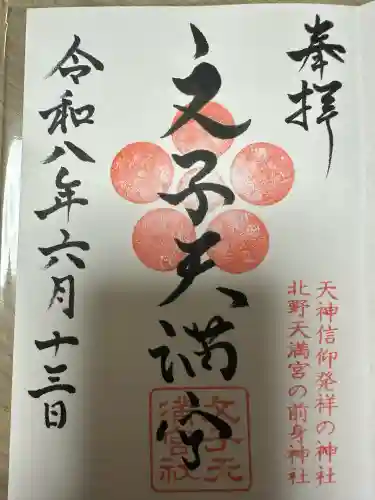 奉拝
天神信仰発祥の神社
北野天満宮の前身神社
文子天満宮
令和八年六月十三日